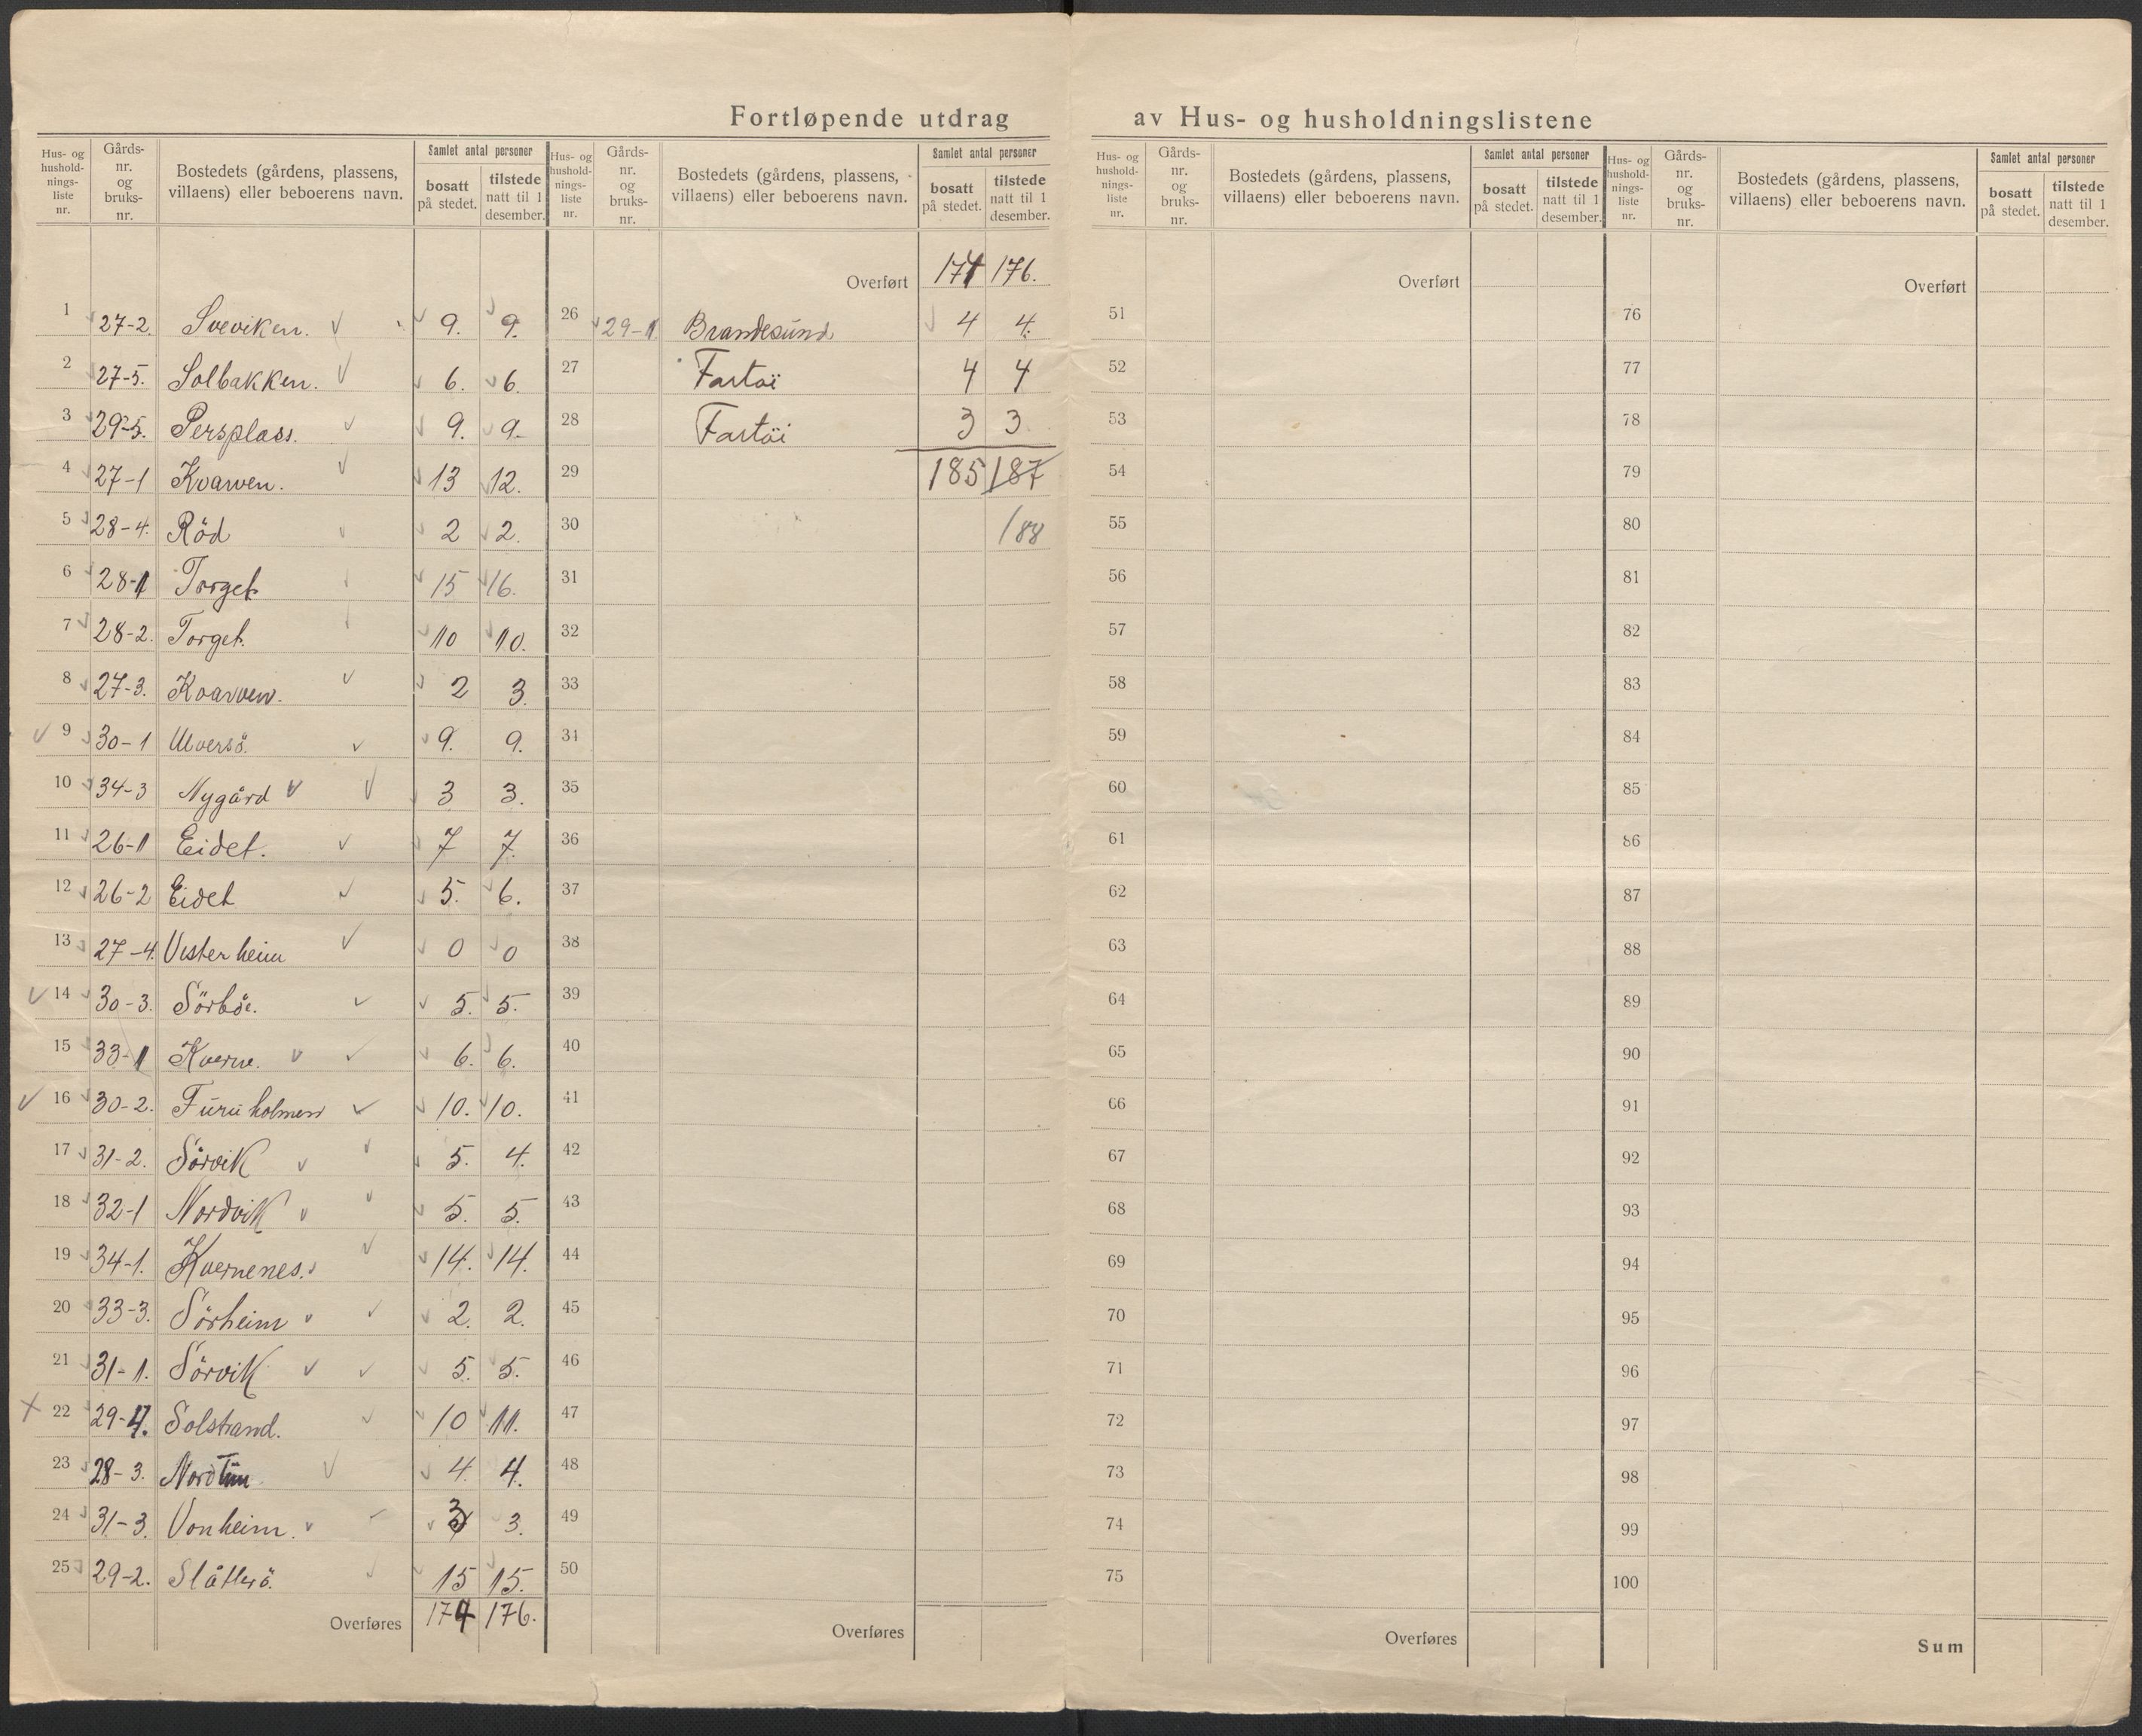 Fortløpende utdrag av Hus- og husholdningslistene
Hus- og hushold-nings-liste nr. | Gårds-nr. og bruks-nr. | Bostedets (gårdens, plassens, villaens) eller beboerens navn. | Samlet antal personer | bosatt på stedet. | tilstede natt til 1 desember.
1 27-2. Sveviken. 9. 9.
2 27-5. Solbakken. 6. 6.
3 29-5. Persplass. 9. 9.
4 27-1 Kvarven. 13 12.
5 28-4. Röd 2 2.
6 28-1 Torget 15 16.
7 28-2. Torget. 10 10.
8 27-3. Kvarven. 2 3.
9 30-1 Ulversö. 9. 9.
10 34-3 Nygård 3 3.
11 26-1 Eidet. 7 7.
12 26-2 Eidet 5. 6.
13 27-4. Vesterheim 0 0
14 30-3. Sörböe. 5. 5.
15 33-1 Kverne. 6. 6.
16 30-2. Furuholmen 10. 10.
17 31-2. Sörvik 5. 4.
18 32-1 Nordvik 5. 5.
19 34-1. Kvernenes. 14. 14.
20 33-3. Sörheim 2. 2.
21 31-1. Sörvik 5. 5.
22 29-4. Solstrand. 10 11.
23 28-3. Nordtun 4. 4.
24 31-3. Vonheim. 3 3.
25 29-2. Slåtterö. 15 15.
Overføres 174 176.
Hus- og hushold-nings-liste nr. | Gårds-nr. og bruks-nr. | Bostedets (gårdens, plassens, villaens) eller beboerens navn. | Samlet antal personer | bosatt på stedet. | tilstede natt til 1 desember.
Overført 174 176.
26 29-1 Brandesund 4 4.
27 Fartöi 4 4
28 Fartöi 3 3
29 185 187
30 188
31
32
33
34
35
36
37
38
39
40
41
42
43
44
45
46
47
48
49
50
Overføres
Hus- og hushold-nings-liste nr. | Gårds-nr. og bruks-nr. | Bostedets (gårdens, plassens, villaens) eller beboerens navn. | Samlet antal personer | bosatt på stedet. | tilstede natt til 1 desember.
Overført
51
52
53
54
55
56
57
58
59
60
61
62
63
64
65
66
67
68
69
70
71
72
73
74
75
Overføres
Hus- og hushold-nings-liste nr. | Gårds-nr. og bruks-nr. | Bostedets (gårdens, plassens, villaens) eller beboerens navn. | Samlet antal personer | bosatt på stedet. | tilstede natt til 1 desember.
Overført
76
77
78
79
80
81
82
83
84
85
86
87
88
89
90
91
92
93
94
95
96
97
98
99
100
Sum